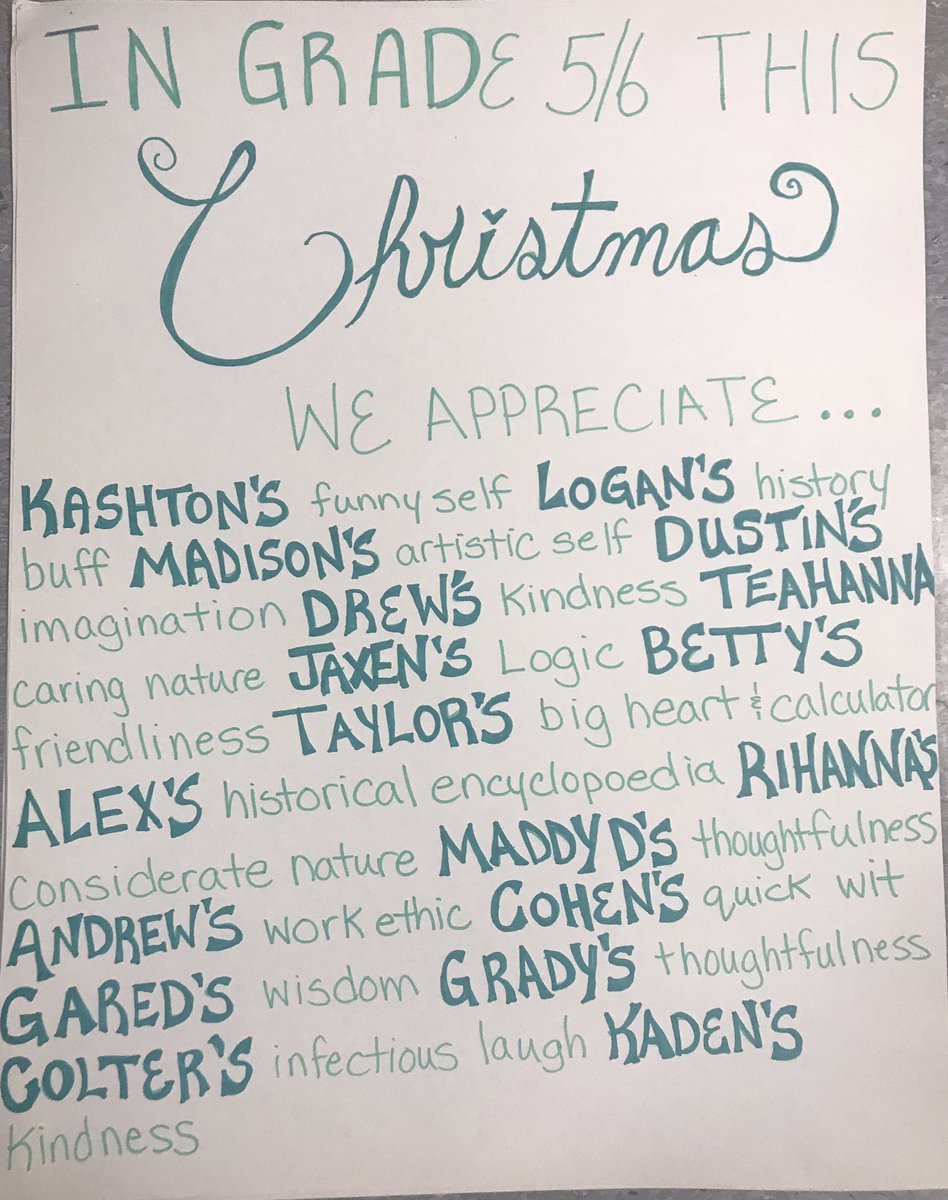 IN GRADE 5/6 THIS
Christmas
WE APPRECIATE...
KASHTON'S funny self LOGAN'S history
buff MADISON'S artistic self DUSTIN'S
imagination DREW'S kindness TEAHANNA
caring nature JAXEN'S Logic BETTY'S
friendliness TAYLOR'S big heart & calculator
ALEX'S historical encyclopoedia RIHANNA'S
considerate nature MADDY D'S thoughtfulness
ANDREW'S work ethic COHEN'S quick wit
GARED'S wisdom GRADY'S thoughtfulness
COLTER'S infectious laugh KADEN'S
kindness